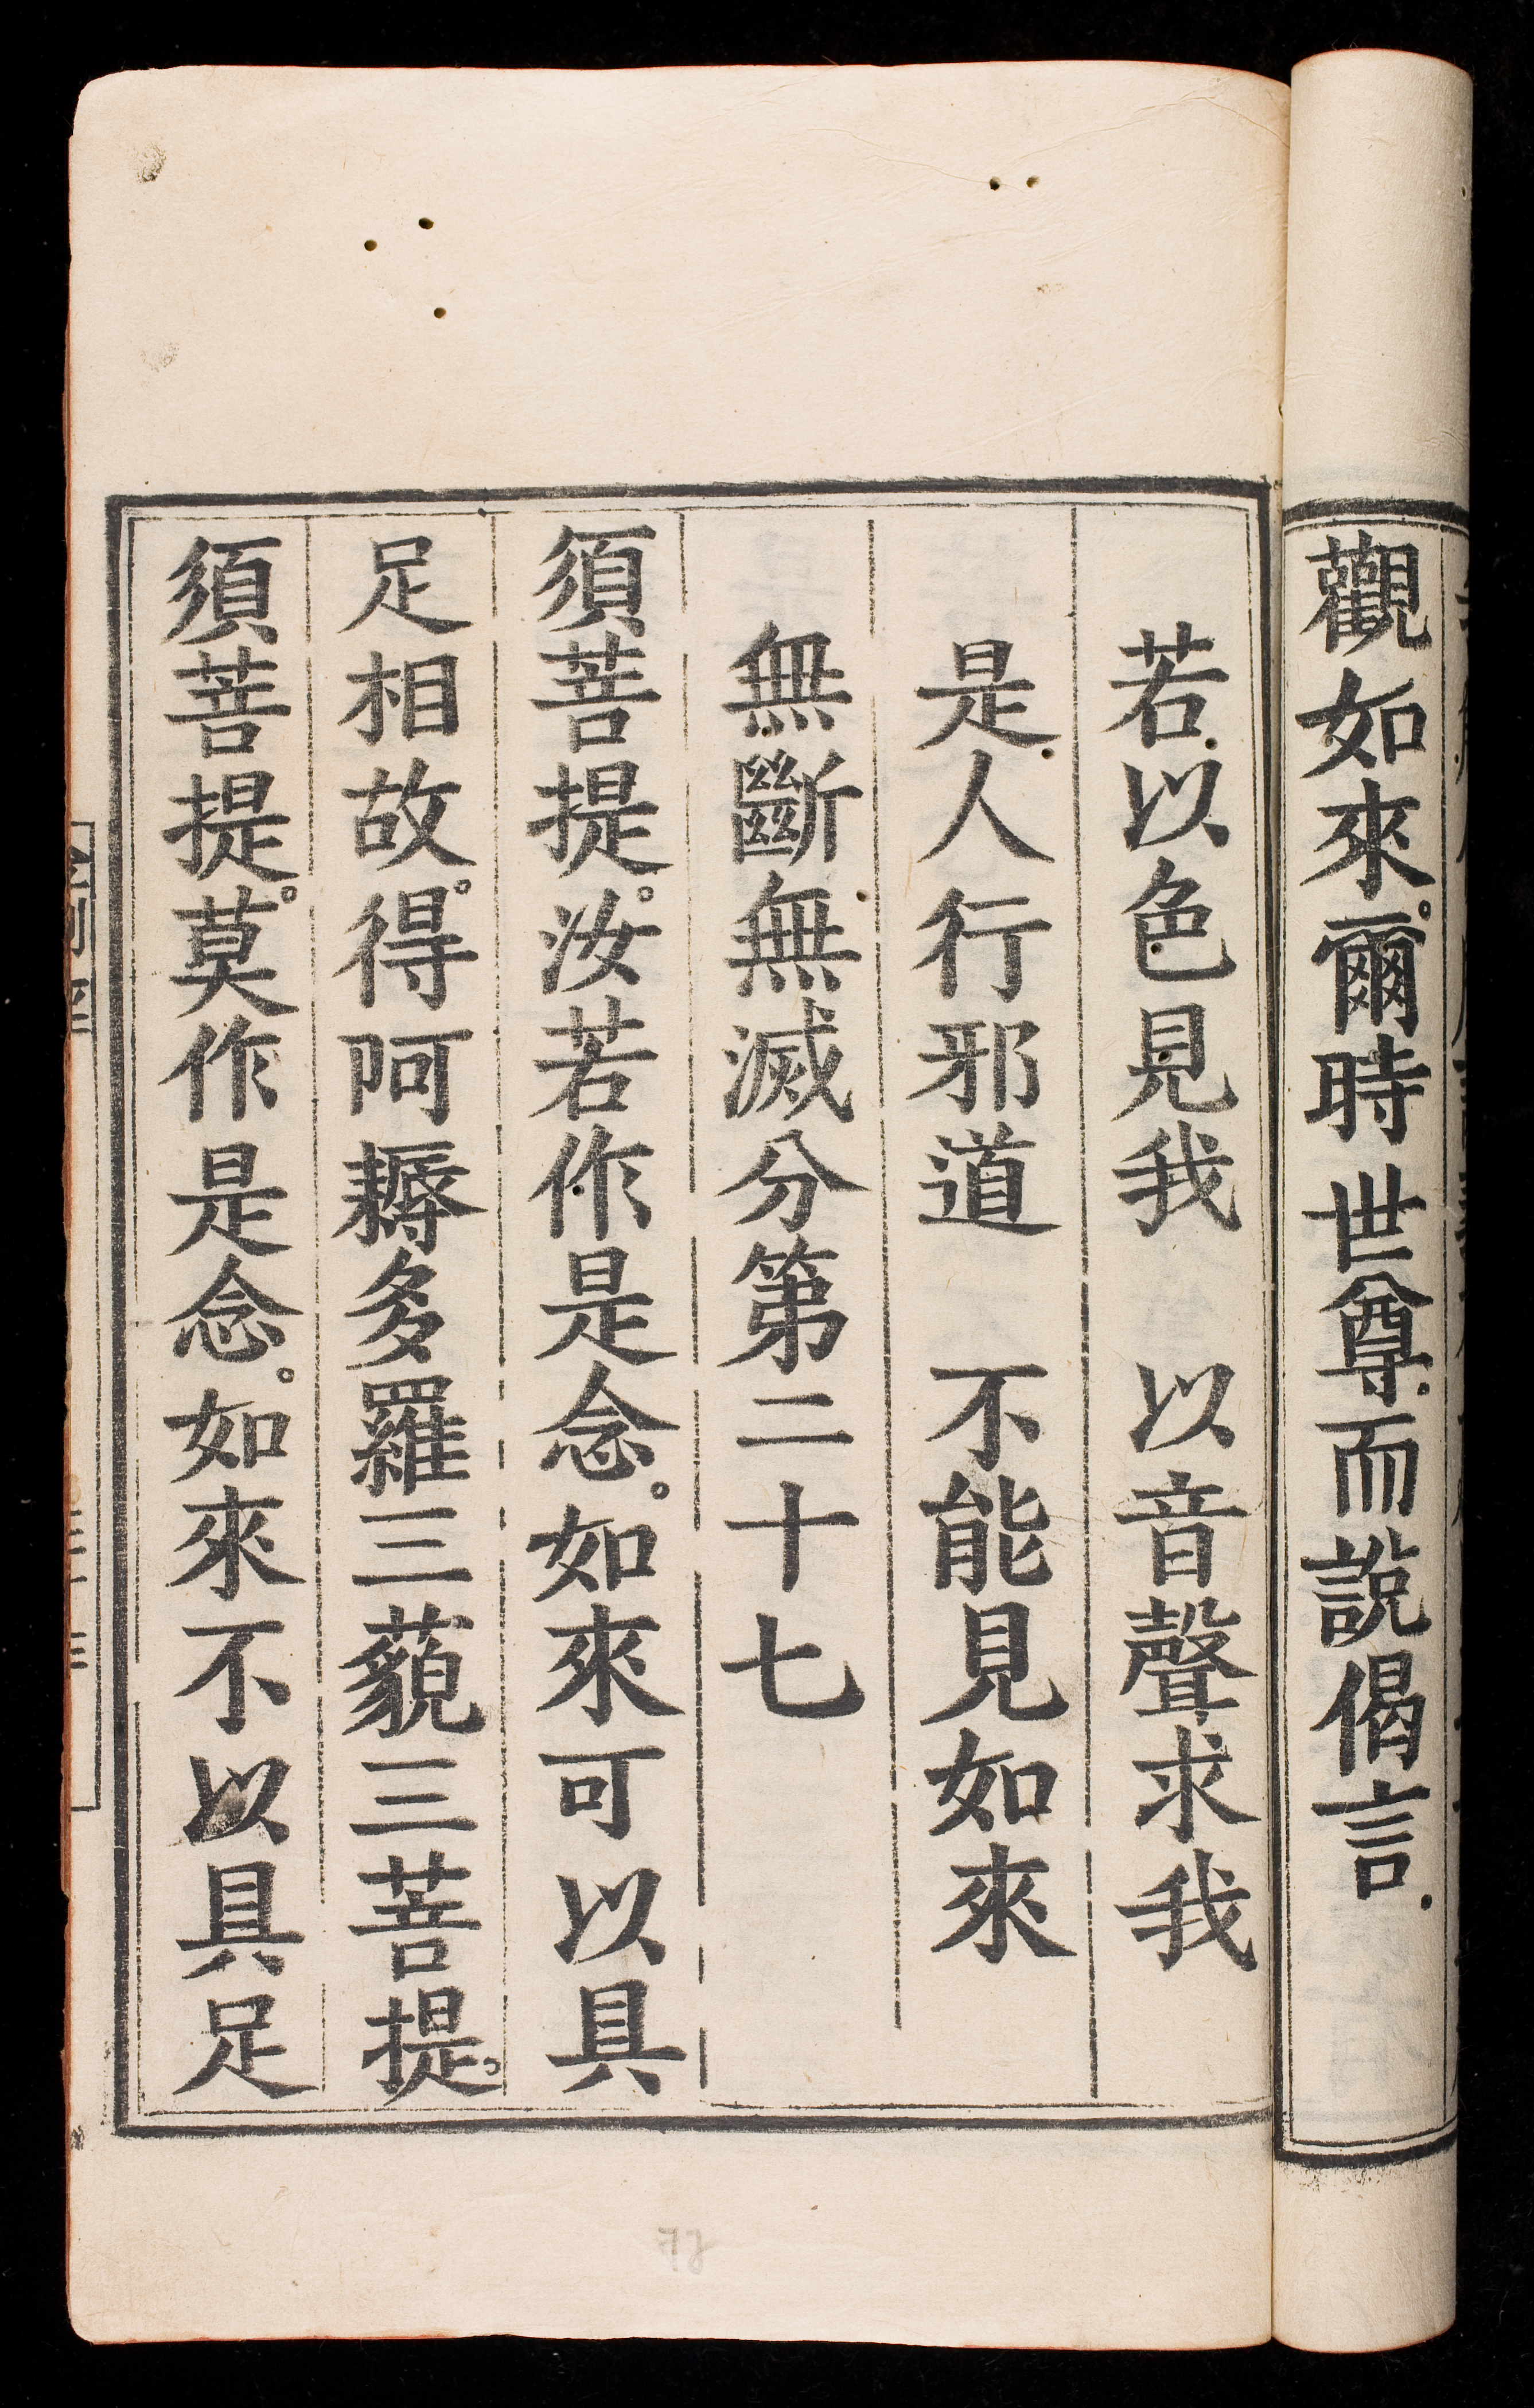 觀如來。爾時世尊而說偈言
若以色見我　以音聲求我
是人行邪道　不能見如來
無斷無滅分第二十七
須菩提。汝若作是念。如來可以具
足相故。得阿耨多羅三藐三菩提。
須菩提。莫作是念。如來不以具足
78